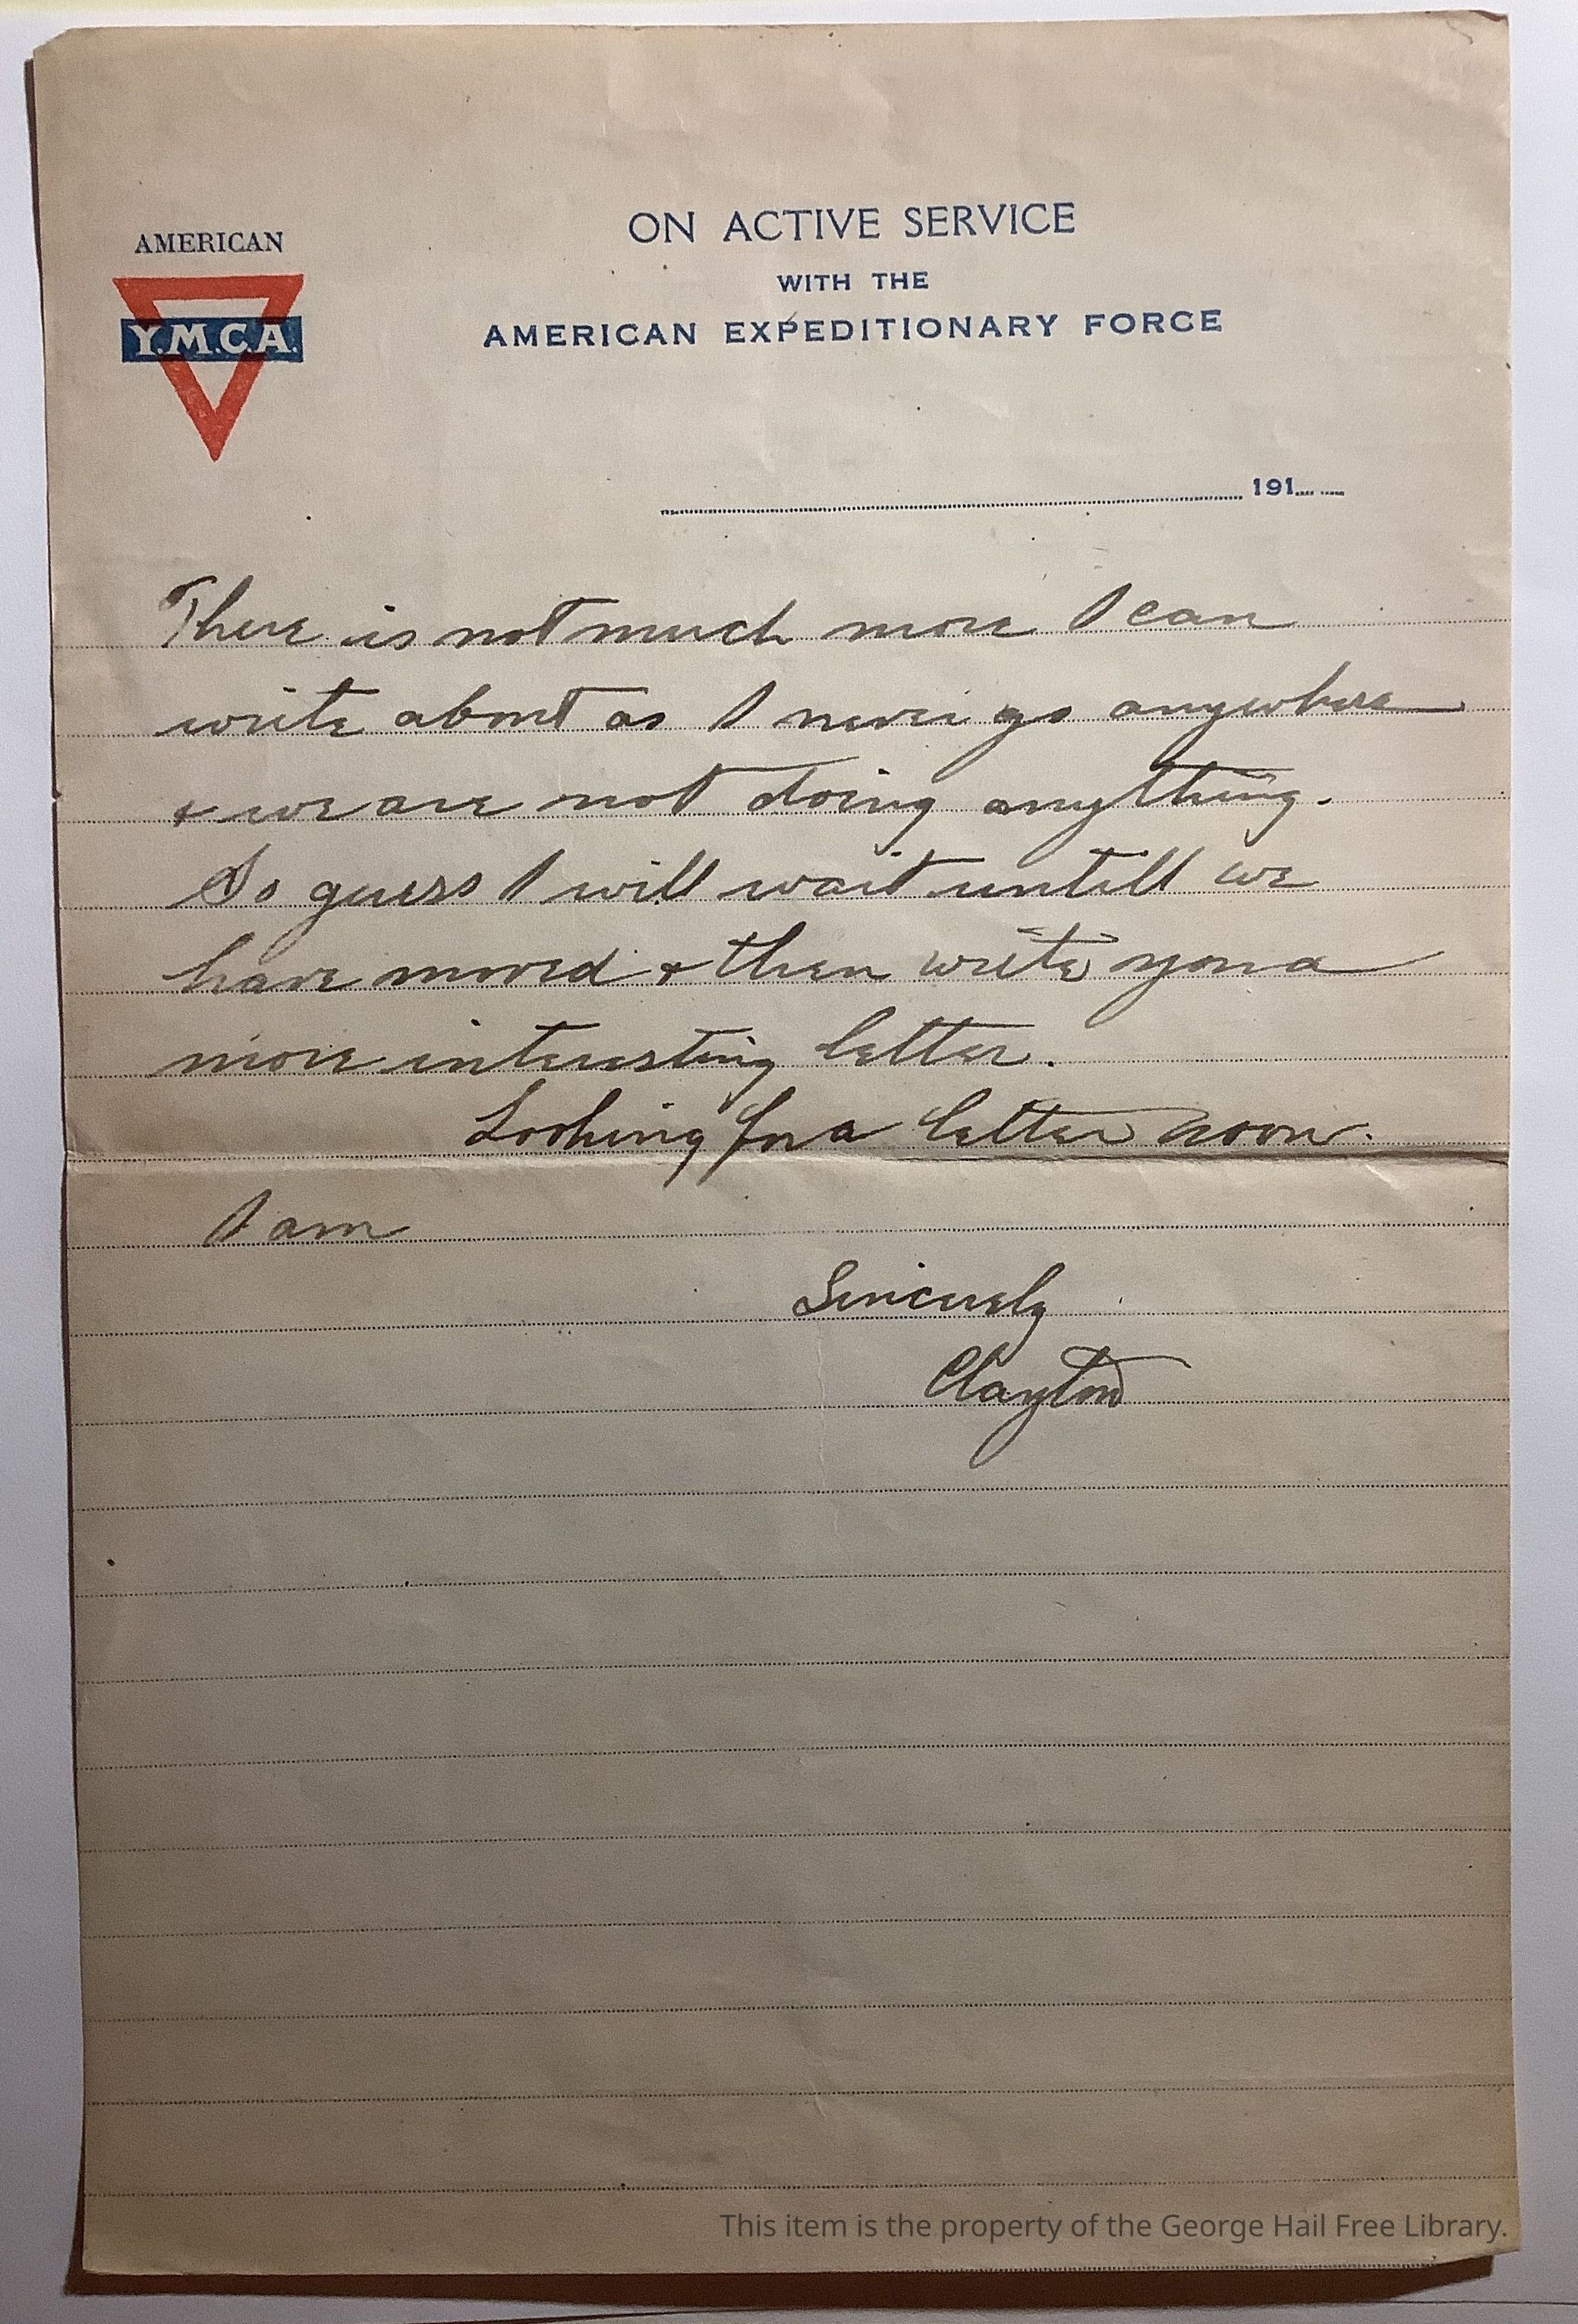 AMERICAN
Y.M.C.A.
ON ACTIVE SERVICE
WITH THE
AMERICAN EXPEDITIONARY FORCE
191
There is not much more I can
write about as I never go anywhere
& we are not doing anything.
So guess I will wait untill we
have moved & then write you a
more interesting letter.
Looking for a letter soon.
I am
Sincerely
Clayton
This item is the property of the George Hail Free Library.